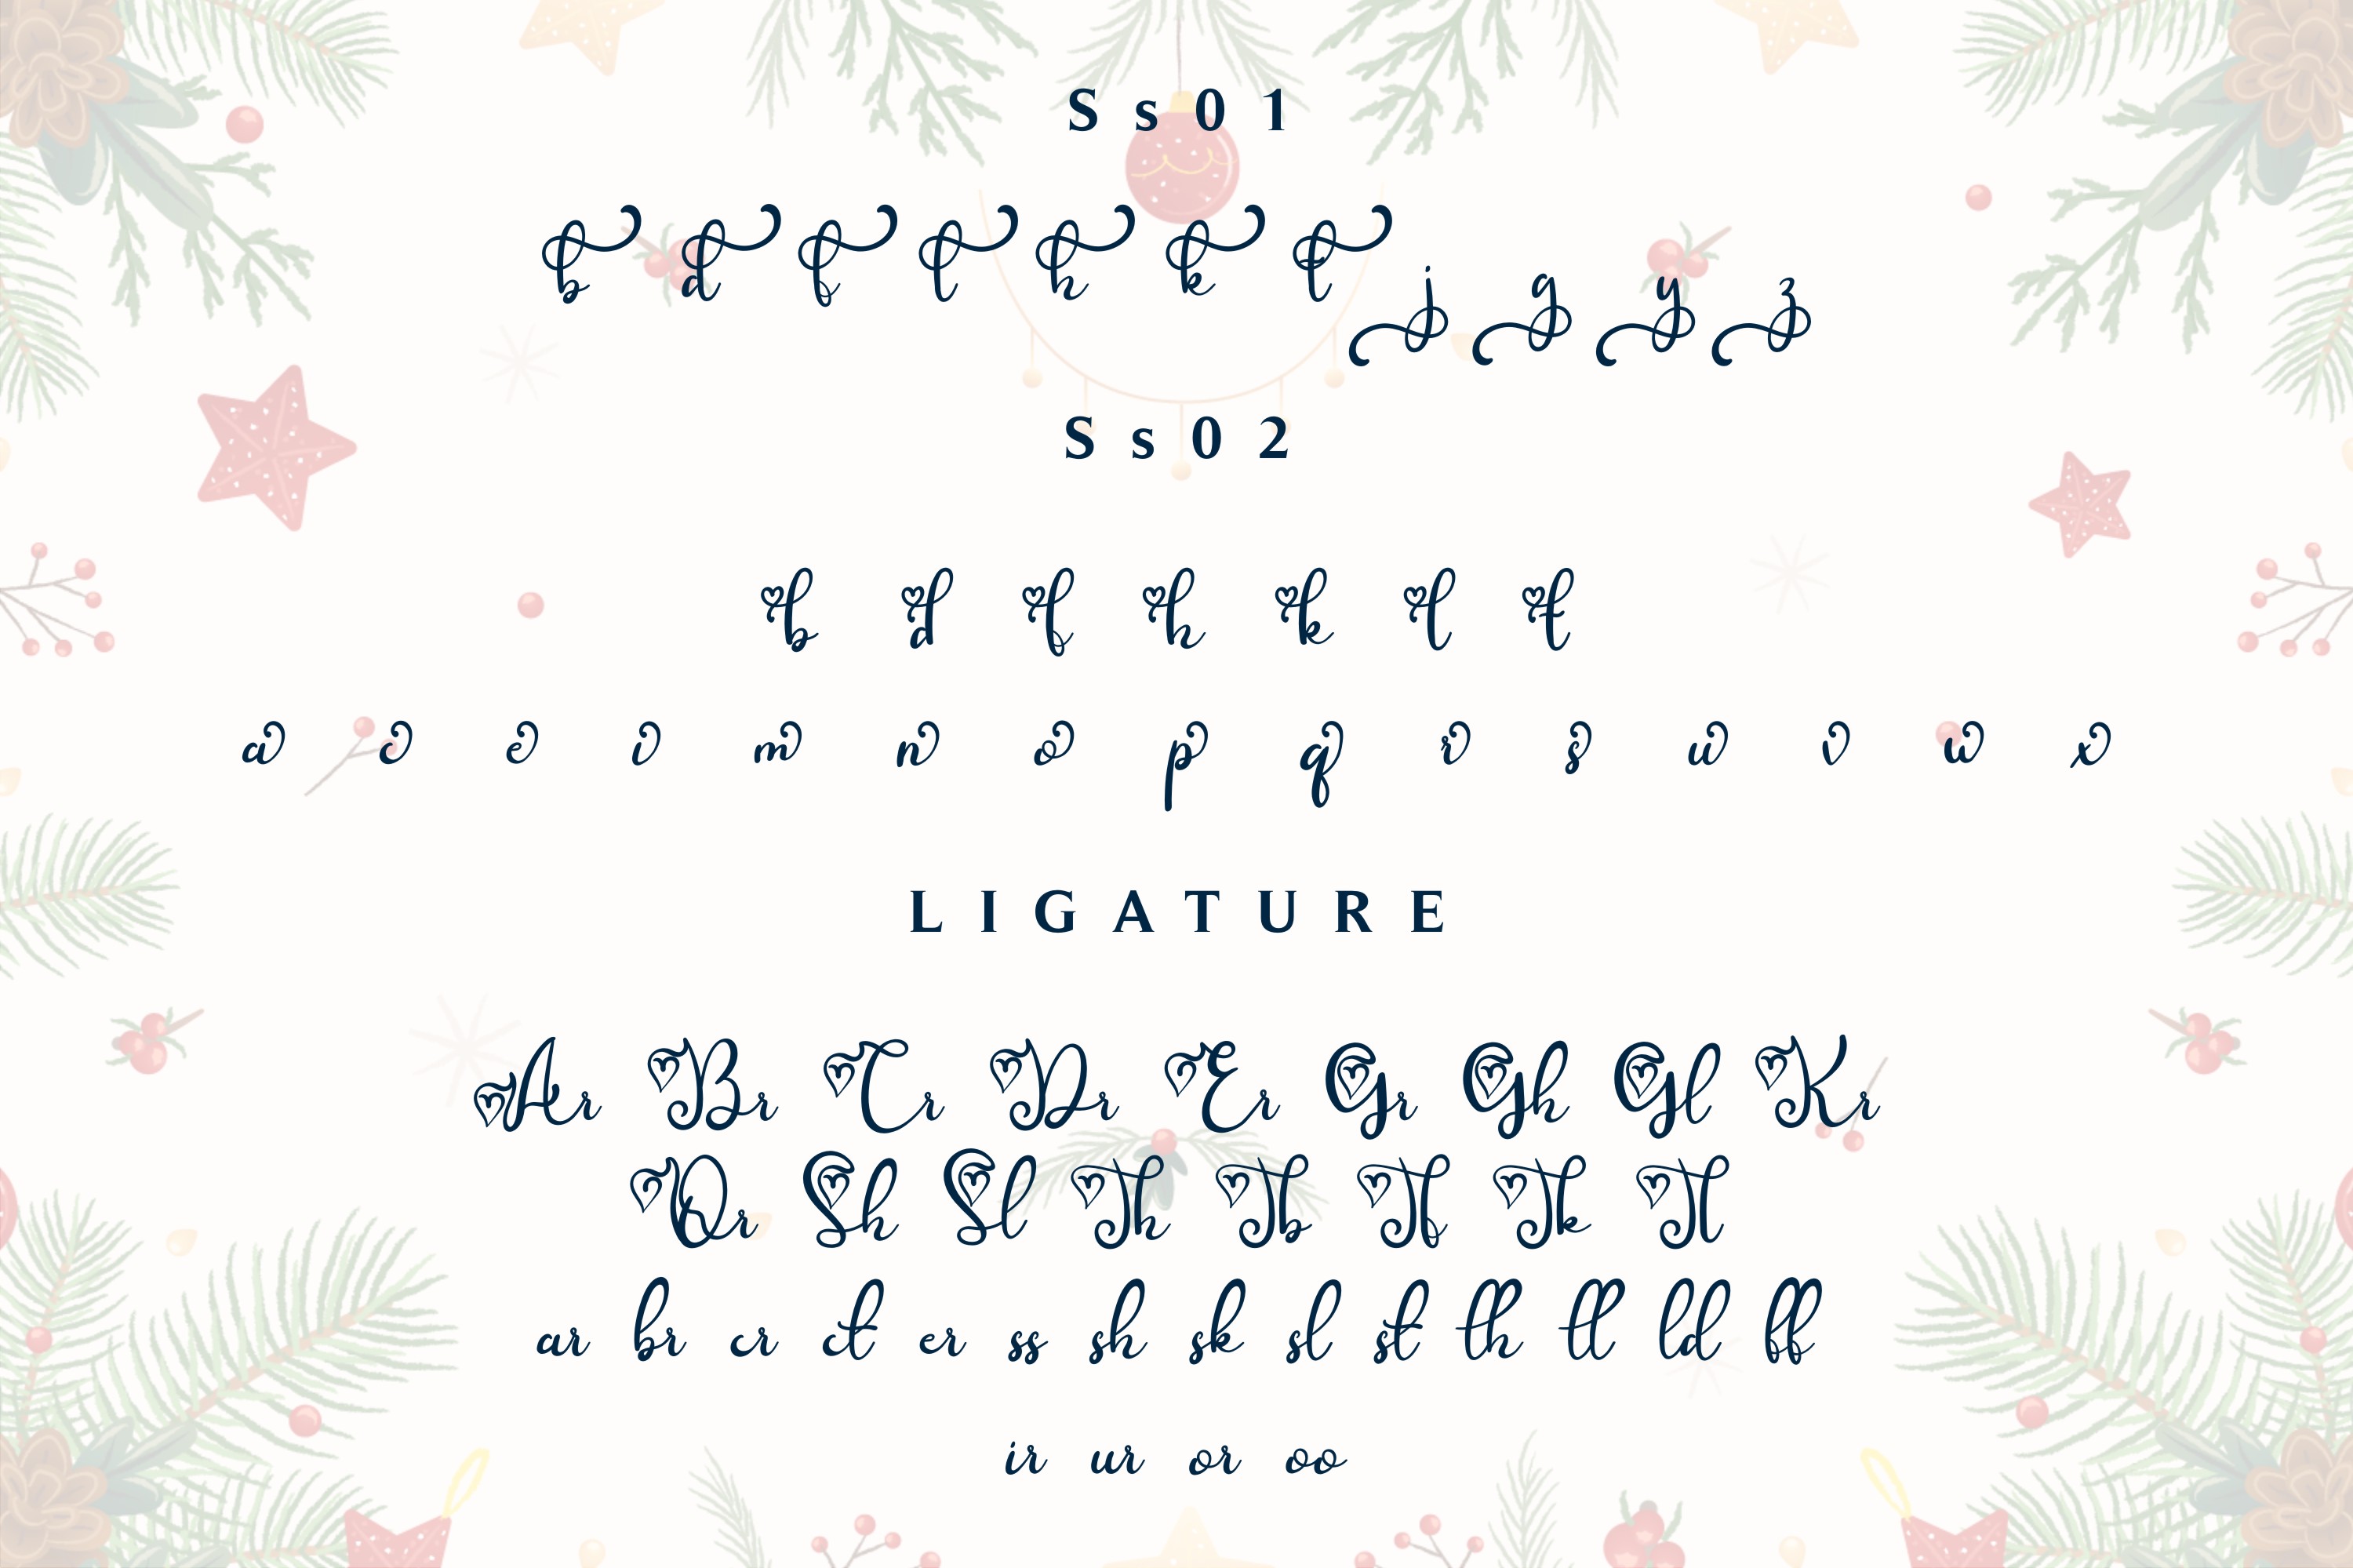 Ss01
b d f l h k t j g y z
Ss02
b d f h k l t
a c e i m n o p q r s u v w x
LIGATURE
Ar Br Cr Dr Er Gr Gh Gl Kr
Qr Sh Sl Th Tb Tf Tk Tl
ar br cr ct er ss sh sk sl st th tl ld ff
ir ur or oo